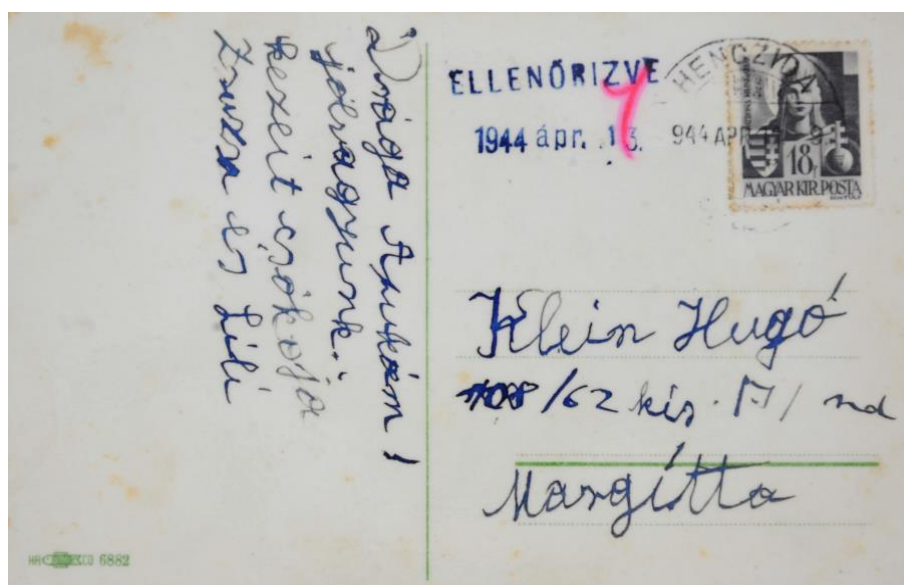 Drága Apukám!
jól vagyunk.
kezeit csókolja
Zsuzsa és Lili
ELLENŐRIZVE
1944 ápr. 13.
HENCZIDA
944 APR
18f
MAGYAR KIR. POSTA
Klein Hugó
108/62 kis.
Margitta
6882